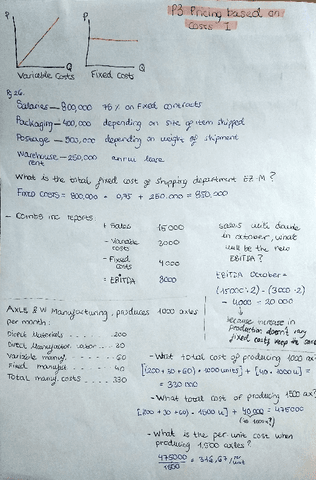 P3 Pricing based on
Costs 1
P
Q
Variable Costs
P
Q
Fixed Costs
Pg 26.
Salaries — 800,000 75% on fixed contracts
Packaging — 400,000 depending on size of item shipped
Postage — 500,000 depending on weight of shipment
Warehouse rent — 250,000 annual lease
What is the total fixed cost of shipping department EZ-M?
Fixed costs = 800,000 · 0,75 + 250.000 = 850,000
- Combs inc reports:
+ Sales 15000
- Variable costs 3000
- Fixed costs 4000
= EBITDA 8000
Sales will double
in october, what
will be the new
EBITDA?
EBITDA October =
(15000·2) - (3000·2)
- 4,000 = 20 000
because increase in
production doesn't
fixed costs keep the same
AXLE & W Manufacturing, produces 1000 axles
per month:
Direct Materials ..... 200
Direct Manufactur. Labor ... 30
Variable manuf. ..... 60
Fixed manuf. ..... 40
Total manuf. costs ... 330
- What total cost of producing 1000 ax?
[(200+30+60)·1000 units] + [40·1000 u] =
= 330 000
- What total cost of producing 1500 ax?
[200+30+60)·1500 u] + 40,000 = 475000
(40·1000)
- What is the per-unit cost when
producing 1,500 axles?
475000
1500
= 316,67/per unit